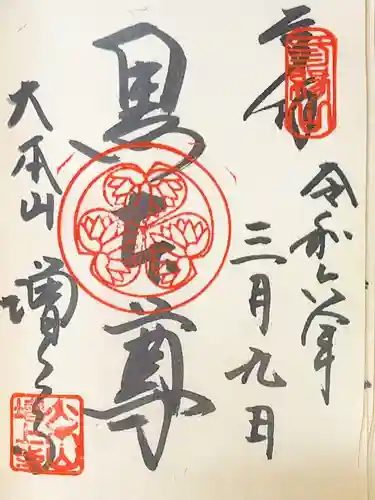 奉拝
令和六年
三月九日
黒本尊
大本山
増上寺